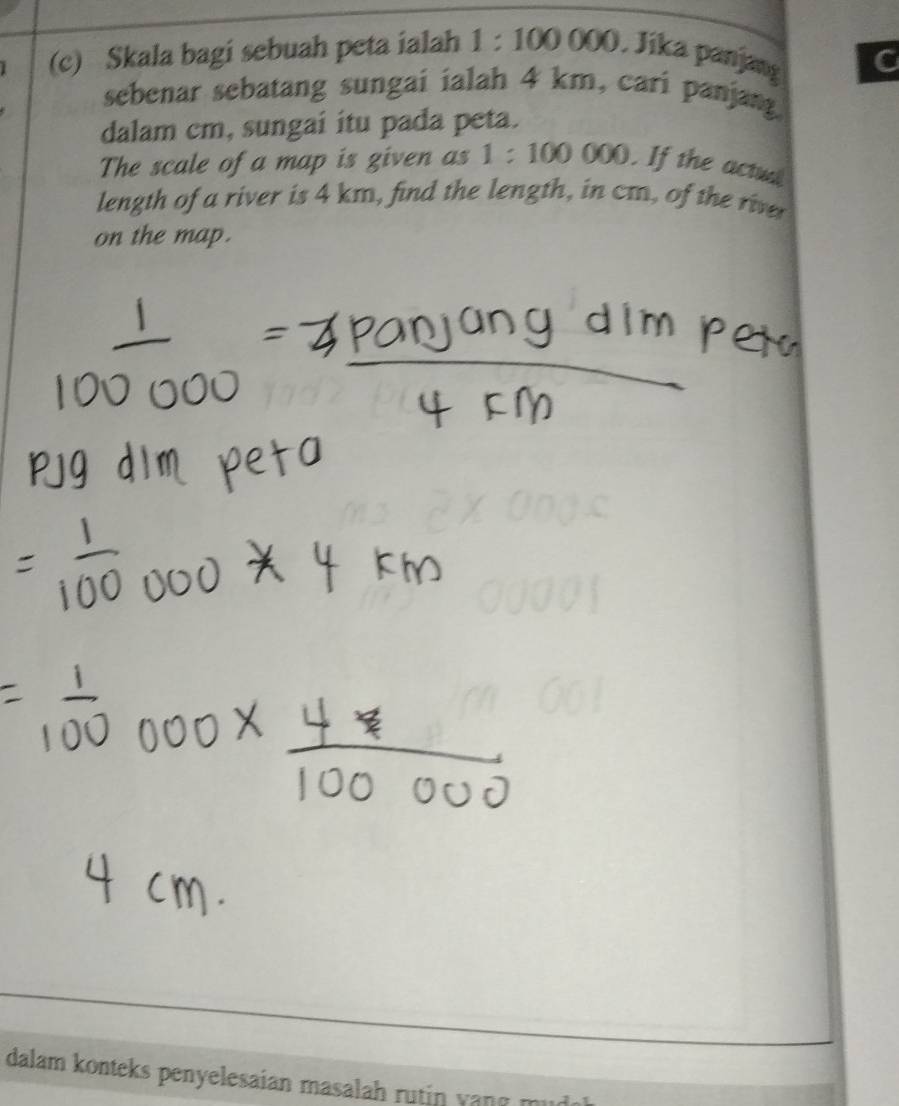 (c) Skala bagi sebuah peta ialah 1 : 100 000. Jika panjang
sebenar sebatang sungai ialah 4 km, cari panjang,
dalam cm, sungai itu pada peta.
The scale of a map is given as 1 : 100 000. If the actual
length of a river is 4 km, find the length, in cm, of the river
on the map.
1 = panjang dlm peta
100 000 4 km
pjg dlm peta
= 1/100 000 × 4 km
= 1/100 000 × 4/100 000
4 cm.
dalam konteks penyelesaian masalah rutin yang
C